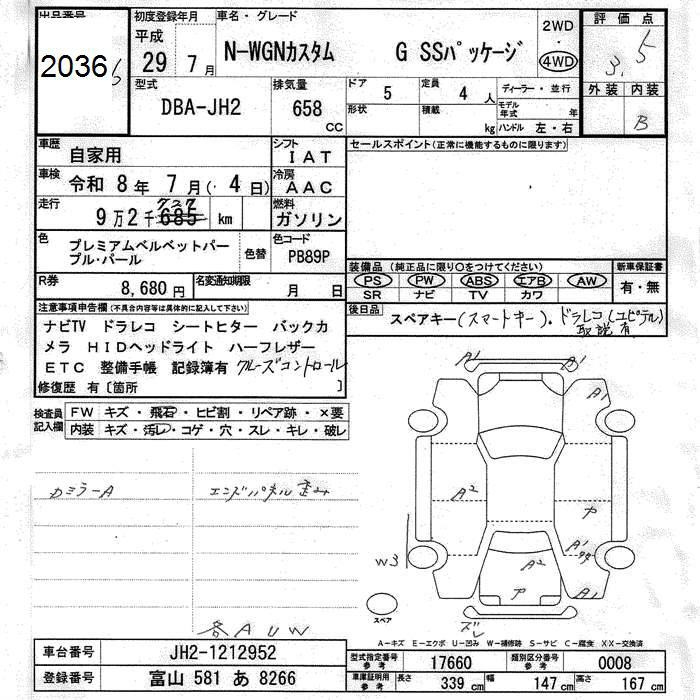 出品番号 初度登録年月 車名・グレード 2WD 評価点
平成 ・
2036 29年 7月 N-WGNカスタム G SSパッケージ 4WD 3.5
型式 排気量 ドア 5 定員 4人 ディーラー・並行 外装 内装
DBA-JH2 658 cc 形状 積載 kg モデル年式 年 B
ハンドル 左・右
車歴 自家用 シフト IAT セールスポイント(正常に機能するものに限ります)
車検 令和 8年 7月(4日) 冷房 AAC
走行 9万2千685km 727 燃料 ガソリン
色 プレミアムベルベットパープル・パール 色替 色コード PB89P
装備品 (純正品に限り○をつけてください) 新車保証書
R券 8,680円 名変通知期限 月 日 PS PW ABS エアB AW 有・無
SR ナビ TV カワ
注意事項申告欄(不具合内容等は具体的に記入して下さい) 後日品 スペアキー(スマートキー).ドラレコ(ユピテル)
取説有
ナビTV ドラレコ シートヒター バックカ
メラ HIDヘッドライト ハーフレザー
ETC 整備手帳 記録簿有 クルーズコントロール
修復歴 有〔箇所 〕
検査員記入欄 FW キズ・飛石・ヒビ割・リペア跡・×要
内装 キズ・汚レ・コゲ・穴・スレ・キレ・破レ
A1 A1
A1
カミラーA エンドパネル歪み A2 ヤ
W3 A1
A2
ヤ A1
スペア ズレ
各AUW
A-キズ E-エクボ U-凹み W-補修跡 S-サビ C-腐食 XX-交換済
車台番号 JH2-1212952 型式指定番号 参考 17660 類別区分番号 参考 0008
登録番号 富山 581 あ 8266 車庫証明用 参考 長さ 339cm 幅 147cm 高さ 167cm